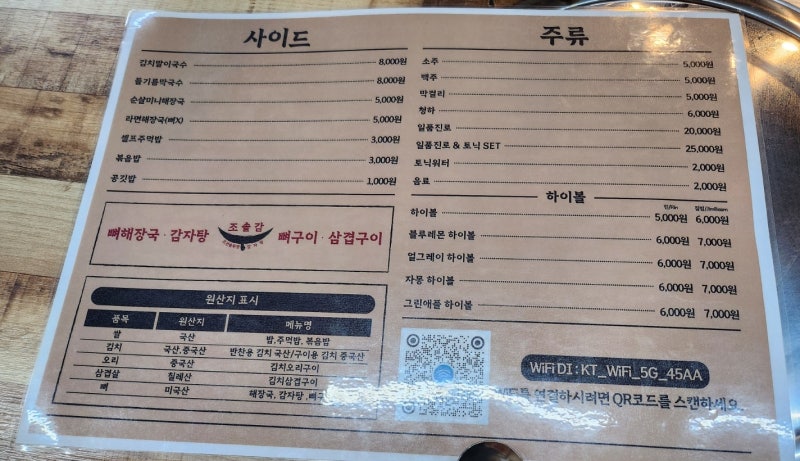 사이드
김치말이국수 8,000원
들기름막국수 8,000원
순살미니해장국 5,000원
라면해장국(뼈X) 5,000원
셀프주먹밥 3,000원
볶음밥 3,000원
공깃밥 1,000원
뼈해장국 · 감자탕 조술감 뼈구이 · 삼겹구이
원산지 표시
품목 원산지 메뉴명
쌀 국산 밥,주먹밥, 볶음밥
김치 국산,중국산 반찬용 김치 국산/구이용 김치 중국산
오리 중국산 김치오리구이
삼겹살 칠레산 김치삼겹구이
뼈 미국산 해장국, 감자탕 ,뼈구
주류
소주 5,000원
맥주 5,000원
막걸리 5,000원
청하 6,000원
일품진로 20,000원
일품진로 & 토닉 SET 25,000원
토닉워터 2,000원
음료 2,000원
하이볼
하이볼 5,000원 6,000원
블루레몬 하이볼 6,000원 7,000원
얼그레이 하이볼 6,000원 7,000원
자몽 하이볼 6,000원 7,000원
그린애플 하이볼 6,000원 7,000원
WiFi DI : KT_WiFi_5G_45AA
연결하시려면 QR코드를 스캔하세요.